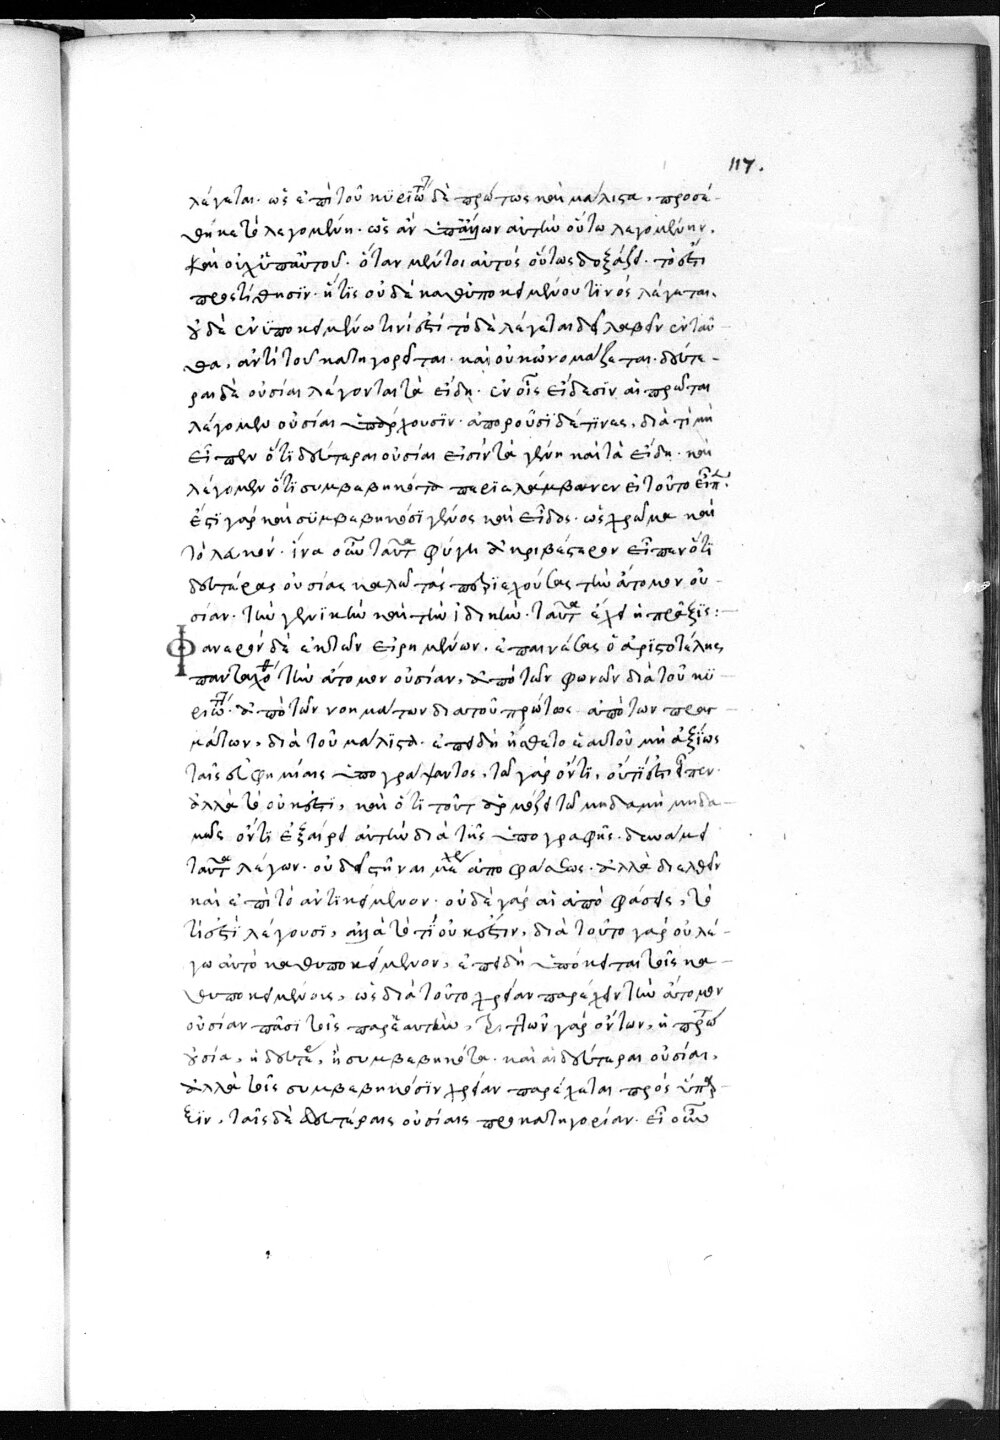 117.
λέγεται. ὡς ἐπὶ τοῦ κυρίως δὲ πρώτως καὶ μάλιστα, προσέ-
θηκε τὸ λεγομένη. ὡς ἂν ἄλλων αὐτὴν οὕτω λεγομένην.
καὶ οὐχ ὑπ' αὐτοῦ. ὅταν μέντοι αὐτὸς οὕτως δοξάζει. τὸ ἐστὶ
προστίθησιν. ἥτις οὐδὲ καθ' ὑποκειμένου τινὸς λέγεται.
οὐδὲ ἐν ὑποκειμένω τινί ἐστί τὸ δὲ λέγεται δεῖ λαβεῖν ἐνταῦ-
θα, ἀντὶ τοῦ κατηγορεῖται. καὶ οὐκ ὠνομάζεται. δεύτε-
ραι δὲ οὐσίαι λέγονται τὰ εἴδη. ἐν οἷς εἴδεσιν αἱ πρῶται
λέγομεν οὐσίαι ὑπάρχουσιν. ἀποροῦσι δέ τινες, διὰ τί μὴ
εἶπεν ὅτι δεύτεραι οὐσίαι εἰσὶν τὰ γένη καὶ τὰ εἴδη. καὶ
λέγομεν ὅτι συμβεβηκότα περιελάμβανεν εἰ τοῦτο εἶπεν.
ἔστι γὰρ καὶ συμβεβηκόσι γένος καὶ εἶδος. ὡς χρῶμα καὶ
τὸ λευκόν. ἵνα οὖν ταῦτα φύγη ἀκριβέστερον εἶπεν ὅτι
δευτέρας οὐσίας καλῶ τὰς περιεχούσας τὴν ἄτομον οὐ-
σίαν. τὴν γενικὴν καὶ τὴν ἰδικήν. ταῦτα ἔχει ἡ πρᾶξις:
Φανερὸν δὲ ἐκ τῶν εἰρημένων. ἐπαινέσας ὁ ἀριστοτέλης
πανταχόθεν τὴν ἄτομον οὐσίαν, ἀπὸ τῶν φωνῶν διὰ τοῦ κυ-
ρίως. ἀπὸ τῶν νοημάτων διὰ τοῦ πρώτως. ἀπὸ τῶν πραγ-
μάτων, διὰ τοῦ μάλιστα. ἐπειδὴ ἤσθετο ἑαυτοῦ μὴ ἀξίως
ταῖς εὐφημίαις ὑπογράψαντος, τῶ γὰρ ὄντι, οὐ τί ἐστὶ εἶπεν.
ἀλλὰ τὸ οὐκ ἔστι, καὶ ὅτι τοῦτο ἁρμόζει τῶ μηδαμῆ μηδα-
μῶς ὄντι ἐξαίρει αὐτὴν διὰ τῆς ὑπογραφῆς. δυνάμει
ταῦτα λέγων. οὐ δεῖ στῆναι μέχρι ἀποφάσεως. ἀλλὰ διελθεῖν
καὶ ἐπὶ τὸ ἀντικείμενον. οὐδὲ γὰρ αἱ ἀποφάσεις, τὸ
τί ἐστὶ λέγουσι, ἀλλὰ τὸ τί οὐκ ἔστιν, διὰ τοῦτο γὰρ οὐ λέ-
γω αὐτὸ καθ' ὑποκείμενον, ἐπειδὴ ὑπόκειται τοῖς κα-
θυποκειμένοις, ὡς διὰ τοῦτο χρείαν παρέχειν τὴν ἄτομον
οὐσίαν πᾶσι τοῖς παρ' ἑαυτὴν, τριττῶν γὰρ ὄντων, ἢ πρώτη
οὐσία, ἢ δευτέρα, ἢ συμβεβηκότα. καὶ αἱ δεύτεραι οὐσίαι,
ἀλλὰ τοῖς συμβεβηκόσιν χρείαν παρέχεται πρὸς ὕπαρ-
ξιν, ταῖς δὲ δευτέραις οὐσίαις πρὸς κατηγορίαν. εἰ οὖν